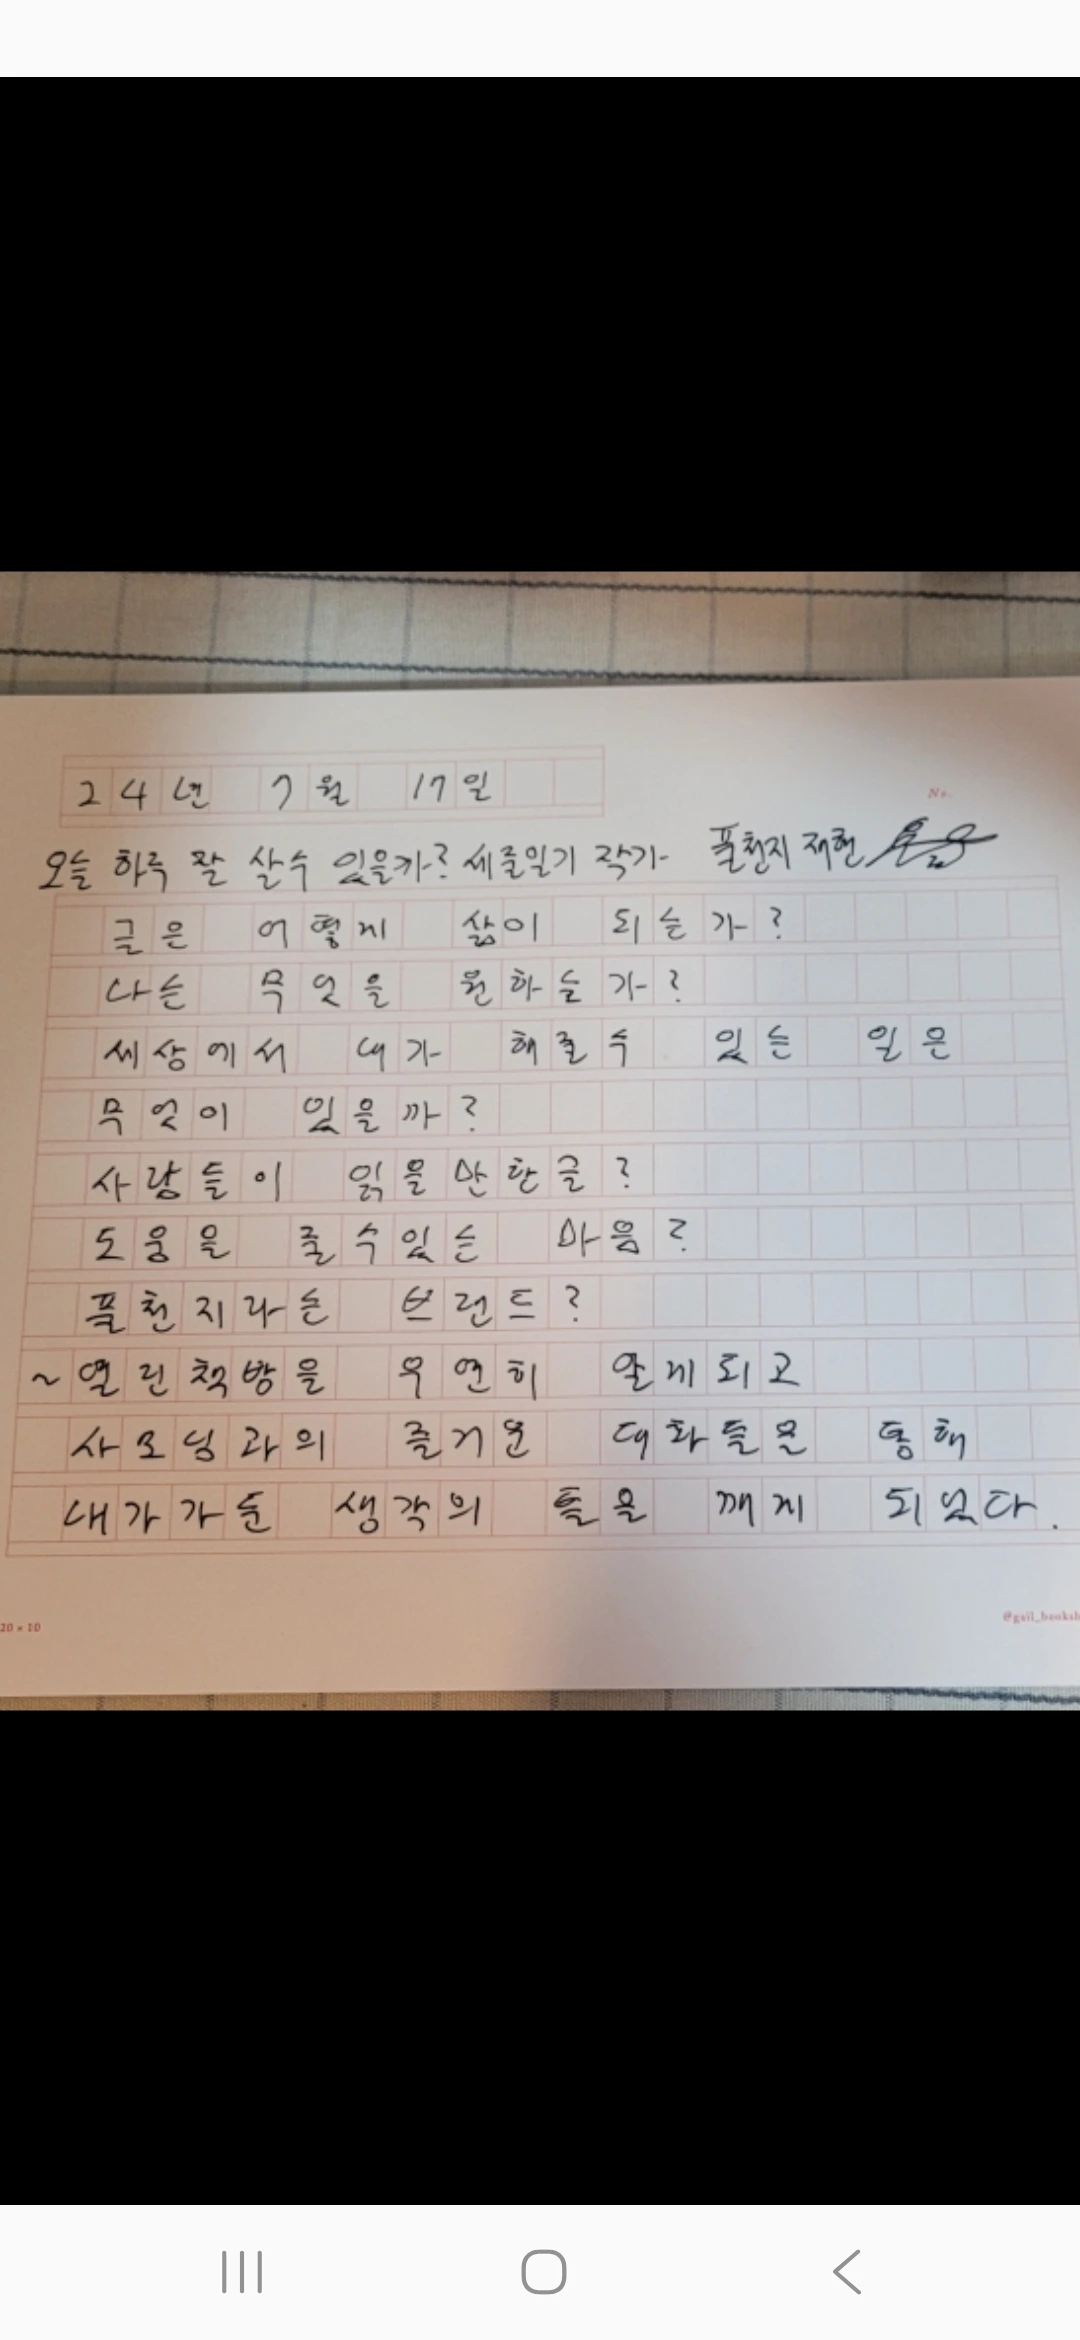 24년 7월 17일
No.
오늘 하루 잘 살수 있을까? 세줄일기 작가 풀천지 재현
글은 어떻게 삶이 되는가?
나는 무엇을 원하는가?
세상에서 내가 해줄수 있는 일은
무엇이 있을까?
사람들이 읽을만한글?
도움을 줄수있는 마음?
풀천지라는 브랜드?
~열린책방을 우연히 알게되고
사모님과의 즐거운 대화들을 통해
내가가둔 생각의 틀을 깨게 되었다.
20 × 10